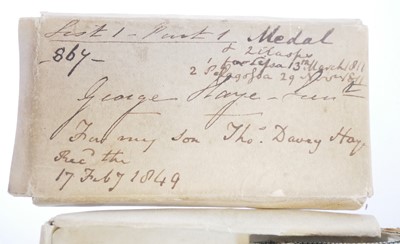 List 1 - Part 1 Medal
- 867 - & 2 Clasps
1 for Lissa 13th March 1811
2 Pelagosa 29 Novr 1811
George Haye - Lieut
For my son Thos. Davey Hay
Recd the
17 Feby 1849